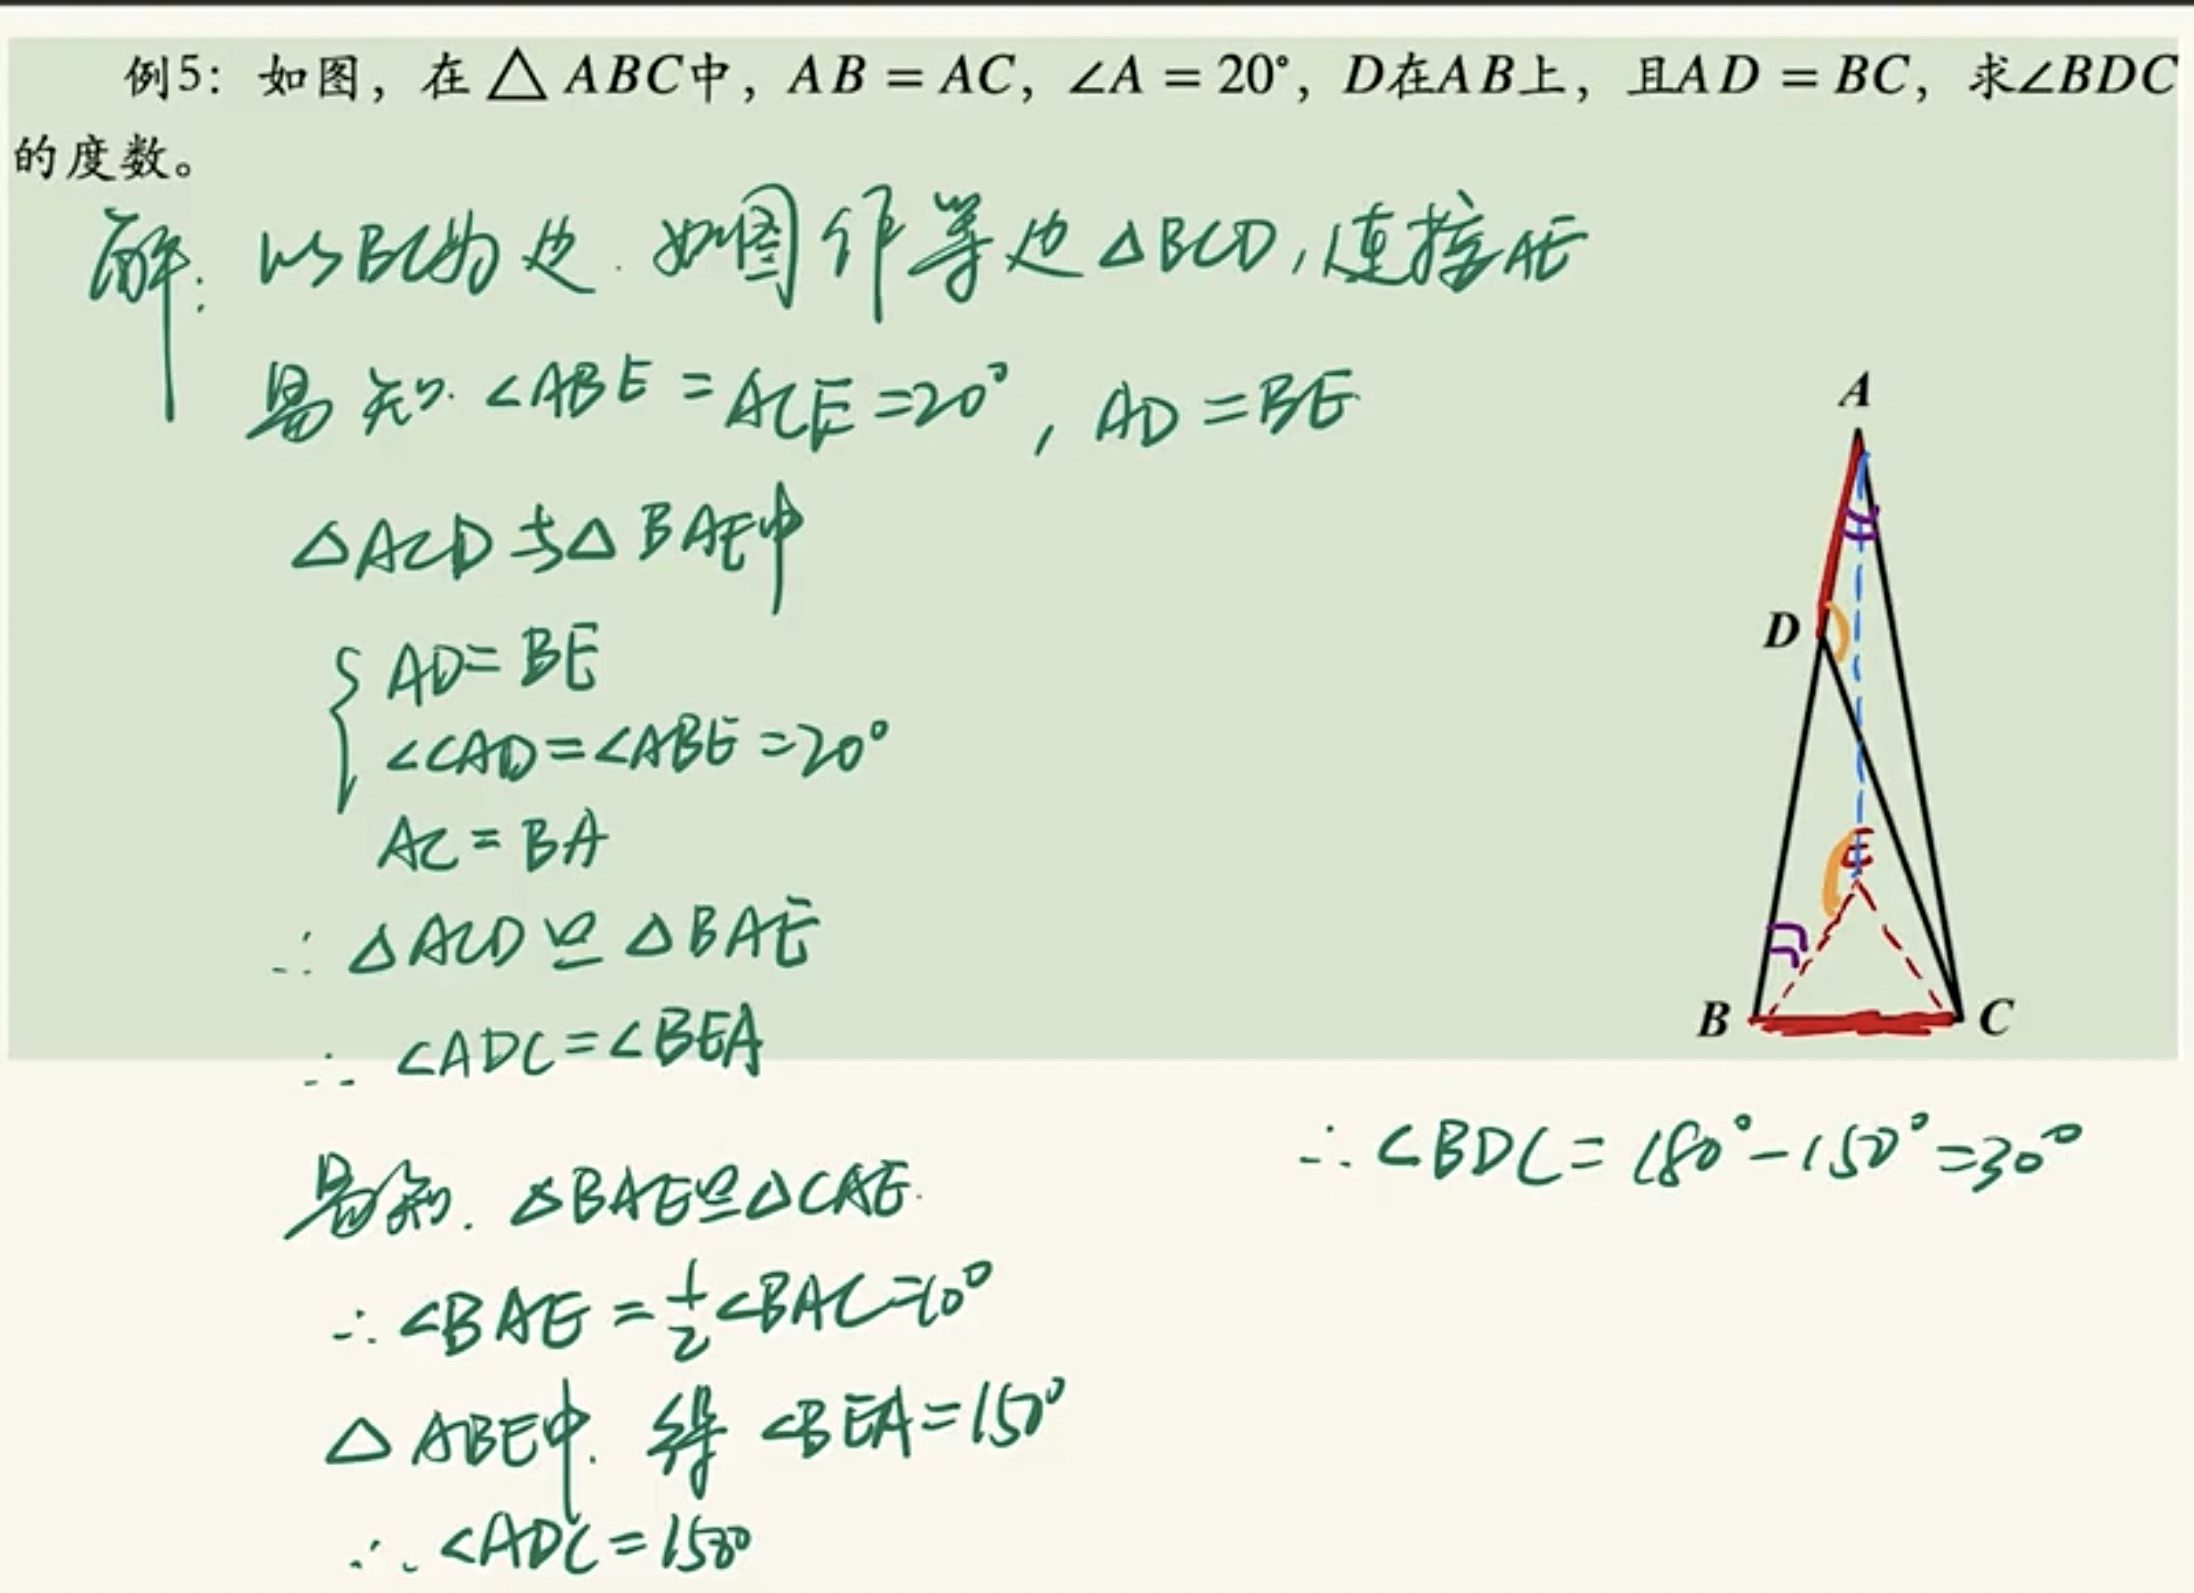 例5：如图，在△ABC中，AB = AC，∠A = 20°，D在AB上，且AD = BC，求∠BDC
的度数。
解：以BC为边．如图作等边△BCD，连接AE
易知．∠ABE = ACE = 20°，AD = BE
△ACD与△BAE中
{ AD = BE
∠CAD = ∠ABE = 20°
AC = BA
∴ △ACD ≌ △BAE
∴ ∠ADC = ∠BEA
易知．△BAE ≌ △CAE．
∴ ∠BAE = 1/2 ∠BAC = 10°
△ABE中．得 ∠BEA = 150°
∴ ∠ADC = 150°
∴ ∠BDC = 180° − 150° = 30°
A
D
E
B
C